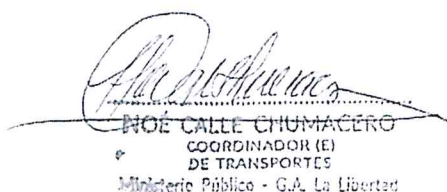 NOÉ CALLE CHUMACERO
COORDINADOR (E)
DE TRANSPORTES
Ministerio Público - G.A. La Libertad